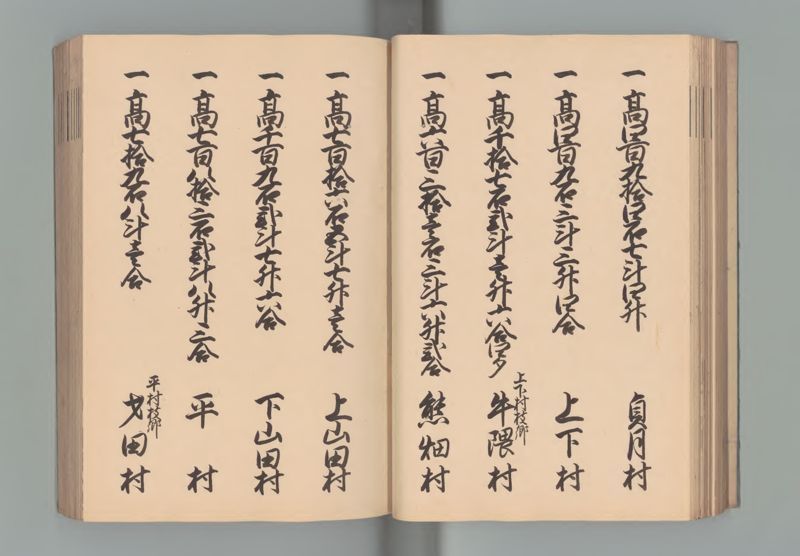 一 高四百九拾四石七斗四升 貞月村
一 高四百九石三斗三升四合 上下村
一 高千拾七石弐斗壱升六合四夕 上下村枝郷 牛隈村
一 高六百三拾壱石三斗六升弐合 熊畑村
一 高七百拾六石五斗七升壱合 上山田村
一 高千百九石弐斗七升六合 下山田村
一 高七百八拾三石弐斗八升三合 平村
一 高七拾九石八斗壱合 平村枝郷 才田村